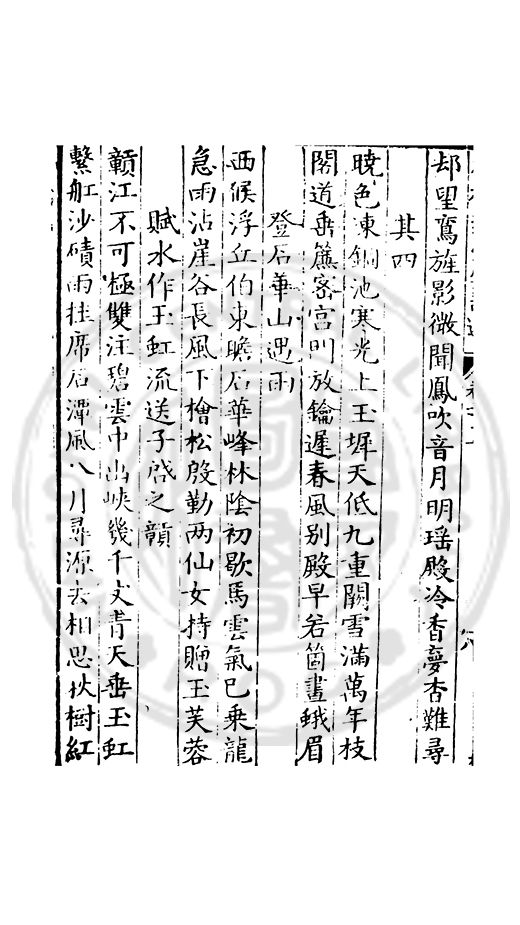 却望鸞旌影微聞鳳吹音月明瑶殿冷香夢杳難尋
其四
曉色凍銅池寒光上玉墀天低九重闕雪滿萬年枝
閣道垂簾密宮門放鑰遲春風別殿早若箇畫蛾眉
登石華山遇雨
西候浮丘伯東瞻石華峰林陰初歇馬雲氣已乗龍
急雨沾崖谷長風下檜松殷勤两仙女持贈玉芙蓉
賦水作玉虹流送子啓之韻
贑江不可極雙注碧雲中出峽幾千丈青天垂玉虹
繫舡沙磧雨挂席石潭風八月尋源去相思秋樹紅